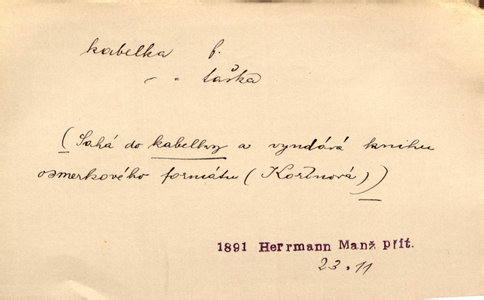 kabelka f.
„ „ taška
(Sahá do kabelky a vyndává knihu
osmerkového formátu (Kořínová))
1891 Herrmann Manž přít.
23.11